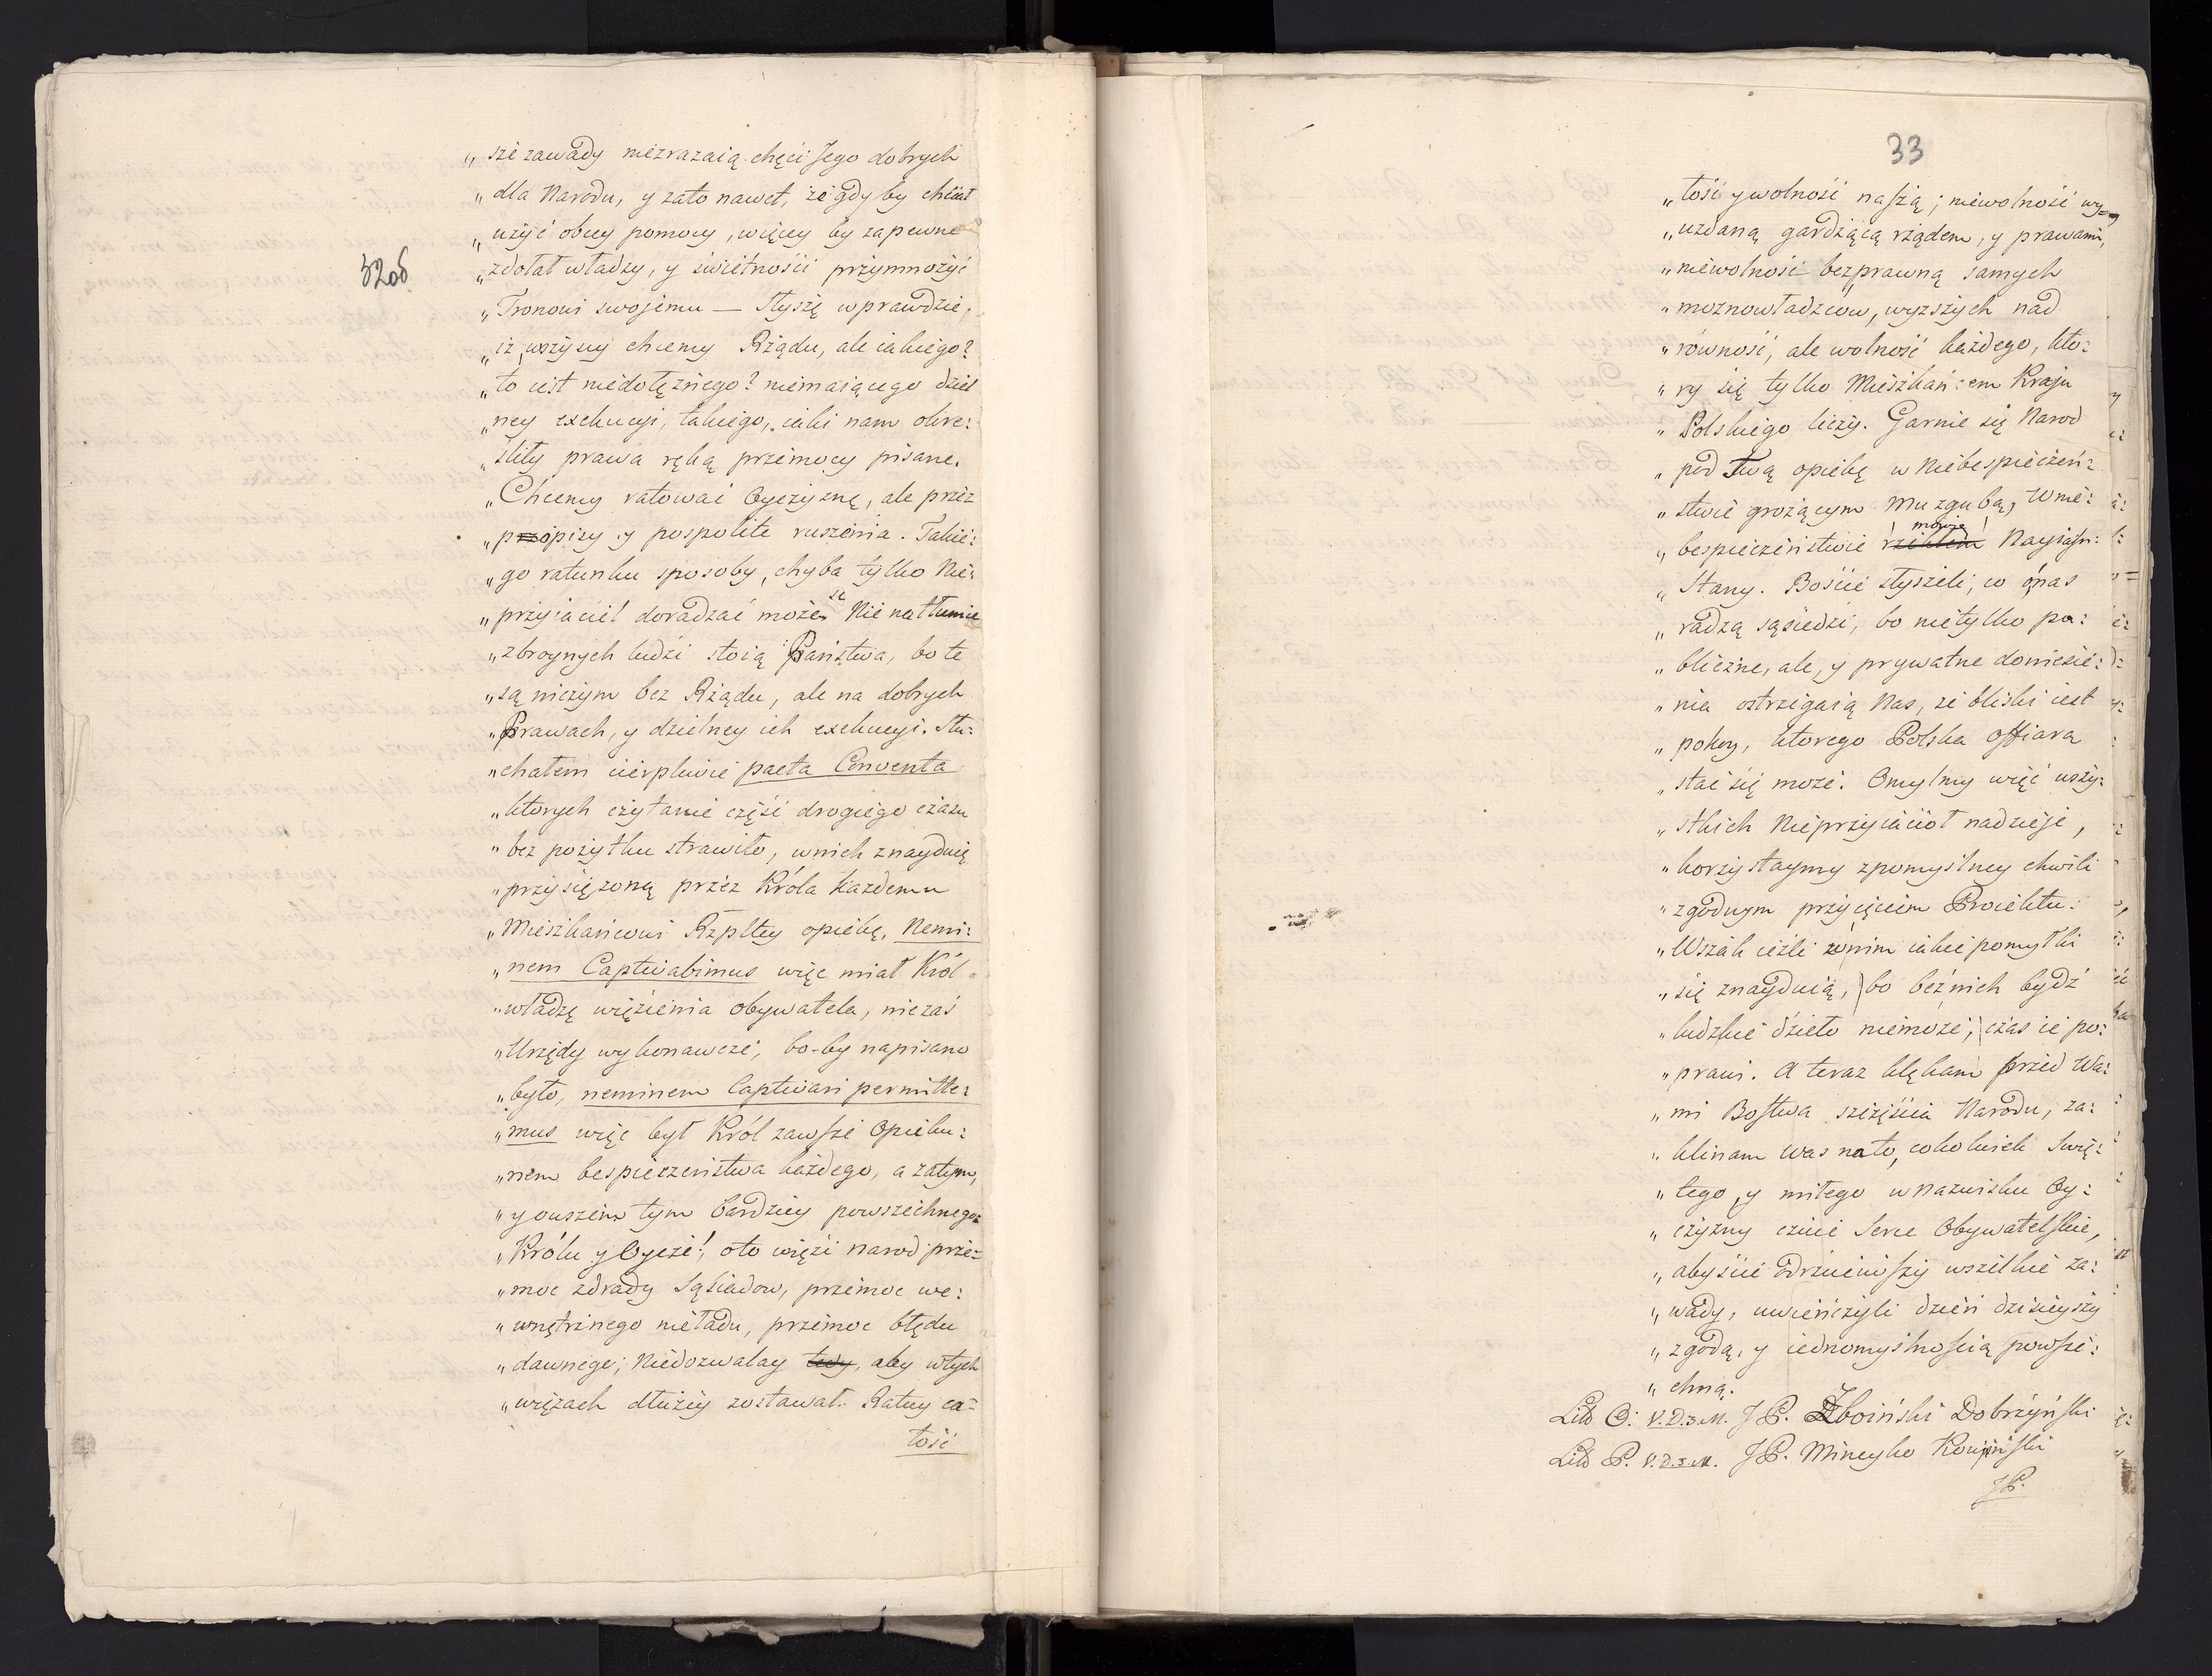 „sze zawady niezrażaią chęci Jego dobrych
„dla Narodu, y zato nawet, że gdy by chciał
„użyć obcey pomocy, więcey by zapewne
32об
„zdołał władzy, y świetności przymnożyć
„Tronowi swojemu — Słyszę wprawdzie,
„iż wszyscy chcemy Rządu, ale iakiego?
„to iest niedołężnego? niemaiącego dziel
„ney exekucyi, takiego, iaki nam okre:
„sliły prawa ręką przemocy pisane.
„Chcemy ratować Oyczyznę, ale przez
„popisy y pospolite ruszenia. Takie:
„go ratunku sposoby, chyba tylko Nie:
„przyiaciel doradzać może. Nie na tłumie
„zbroynych ludzi stoią Państwa, bo te
„są niczym bez Rządu, ale na dobrych
„Prawach, y dzielney ich exekucyi. Słu:
„chałem cierpliwie pacta Conventa
„ktorych czytanie część drogiego czasu
„bez pożytku strawiło, w nich znayduię
„przysiężoną przez Króla każdemu
„Mieszkańcowi Rzpltey opiekę, Nemi:
„nem Captivabimus więc miał Król
„władzę więzienia obywatela, nie zaś
„Urzędy wykonawcze, bo-by napisano
„było, neminem Captivari permitte:
„mus więc był Król zawsze Opieku:
„nem bespieczeństwa każdego, a zatym,
„y owszem tym bardziey powszechnego:
„Królu y Oycze! oto więzi narod prze:
„moc zdrady Sąsiadow, przemoc we:
„wnętrznego nieładu, przemoc błędu
„dawnego; Niedozwalay tedy, aby w tych
„więzach dłużey zostawał. Ratuy ca:
łość
33
„łość y wolność naszą; niewolność wy:
„uzdaną gardzącą rządem, y prawami,
„niewolność bezprawną samych
„moznowładzcow, wyższych nad
„równość, ale wolność każdego, kto:
„ry się tylko Mieszkańcem Kraju
„Polskiego liczy. Garnie się Narod
„pod Twą opiekę w Niebespieczeń:
„stwie grożącym Mu zgubą, W nie:
mowię
„bespieczeństwie rzekłem Nayiaśn:
„Stany. Boście słyszeli, co o nas
„radzą sąsiedzi, bo nietylko pu:
„bliczne, ale, y prywatne doniesie:
„nia ostrzegaią Nas, że bliski iest
„pokoy, ktorego Polska offiarą
„stać się może. Omylmy więc wszy:
„stkich Nieprzyiacioł nadzieje,
„korzystaymy z pomyślney chwili
„zgodnym przyięciem Proiektu.
„Wszak ieźli w nim iakie pomyłki
„się znayduią, bo bez nich bydź
„ludzkie dzieło niemoże, czas ie po:
„prawi. A teraz klękam przed Wa:
„mi Bostwa szczęścia Narodu, za:
„klinam was na to, cokolwiek Swię:
„tego, y miłego w nazwisku Oy:
„czyzny czuie Serce Obywatelskie,
„abyście odrzuciwszy wszelkie za:
„wady, uwieńczyli dzień dzisieyszy
„zgodą, y iednomyślnością powsze:
„chną.
Litt O: V.D.3.M. JP. Zboiński Dobrzyński
Litt P. V.D.3.M. JP. Mineyko Kowiński
JP.